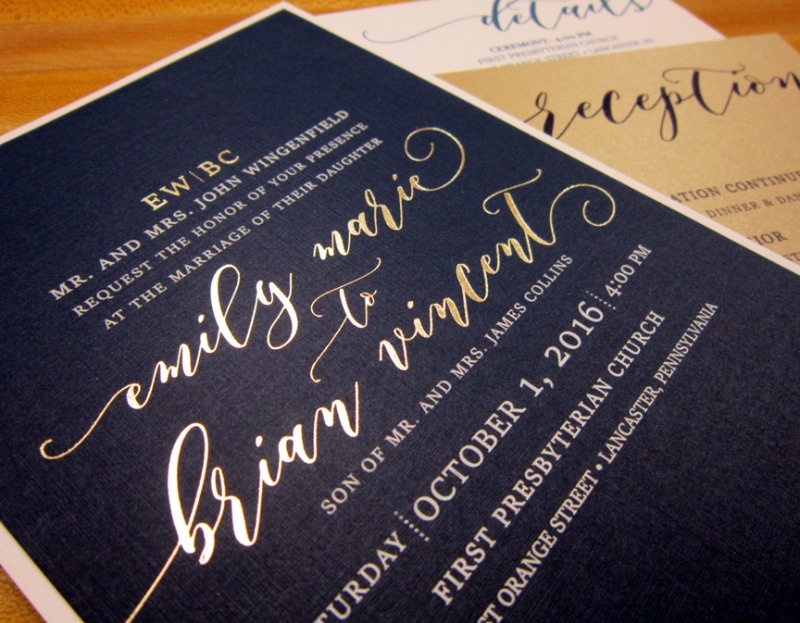 EW|BC
MR. AND MRS. JOHN WINGENFIELD
REQUEST THE HONOR OF YOUR PRESENCE
AT THE MARRIAGE OF THEIR DAUGHTER
emily marie
to
brian vincent
SON OF MR. AND MRS. JAMES COLLINS
OCTOBER 1, 2016 4:00 PM
FIRST PRESBYTERIAN CHURCH
ORANGE STREET • LANCASTER, PENNSYLVANIA
details
CEREMONY: 4:00 PM
FIRST PRESBYTERIAN CHURCH
ORANGE STREET • LANCASTER, PA
reception
DINNER & DAN